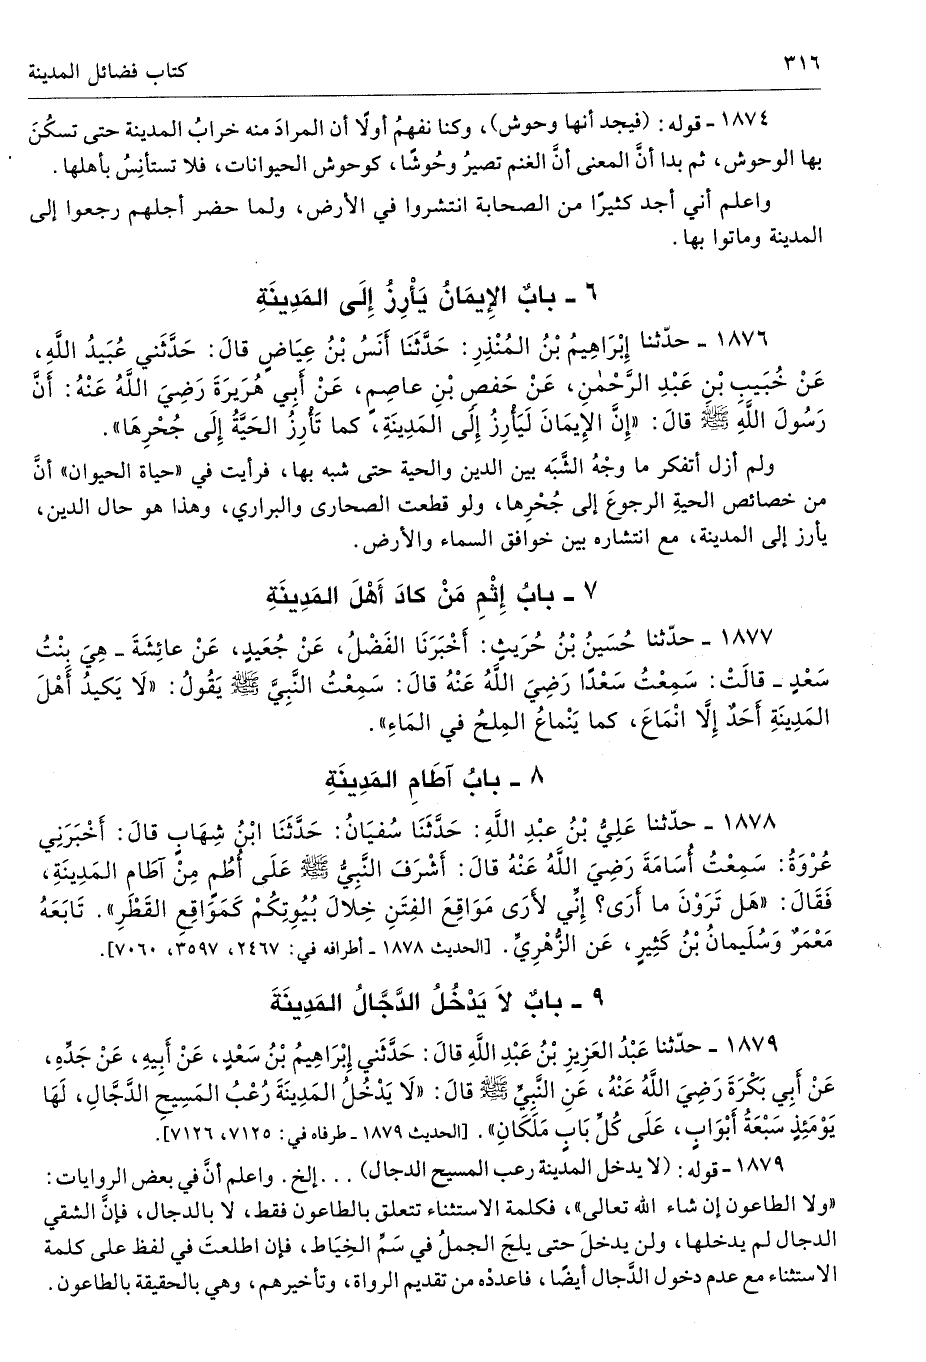 ٣١٦
كتاب فضائل المدينة
١٨٧٤ - قوله: (فيجد أنها وحوش)، وكنا نفهمُ أولًا أن المرادَ منه خرابُ المدينة حتى تسكُنَ
بها الوحوش، ثم بدا أنَّ المعنى أنَّ الغنم تصيرُ وحُوشًا، كوحوش الحيوانات، فلا تستأنِسُ بأهلها.
واعلم أني أجد كثيرًا من الصحابة انتشروا في الأرض، ولما حضر أجلهم رجعوا إلى
المدينة وماتوا بها.
٦ - بابٌ الإِيمَانُ يَأْرِزُ إِلَى المَدِينَةِ
١٨٧٦ - حدّثنا إِبْرَاهِيمُ بْنُ المُنْذِرِ: حَدَّثَنَا أَنَسُ بْنُ عِيَاضٍ قالَ: حَدَّثَني عُبَيدُ اللَّهِ،
عَنْ خُبَيبِ بْنِ عَبْدِ الرَّحْمٰنِ، عَنْ حَفصِ بْنِ عاصِمٍ، عَنْ أَبِي هُرَيرَةَ رَضِيَ اللَّهُ عَنْهُ: أَنَّ
رَسُولَ اللَّهِ ﷺ قالَ: «إِنَّ الإِيمَانَ لَيَأْرِزُ إِلَى المَدِينَةِ، كما تَأْرِزُ الحَيَّةُ إِلَى جُحْرِهَا».
ولم أزل أتفكر ما وجْهُ الشَّبَه بين الدين والحية حتى شبه بها، فرأيت في «حياة الحيوان» أنَّ
من خصائص الحيةِ الرجوعَ إلى جُحْرِها، ولو قطعت الصحارى والبراري، وهذا هو حال الدين،
يأرز إلى المدينة، مع انتشاره بين خوافق السماء والأرض.
٧ - بابُ إِثْمِ مَنْ كادَ أَهْلَ المَدِينَةِ
١٨٧٧ - حدّثنا حُسَينُ بْنُ حُرَيثٍ: أَخْبَرَنَا الفَضْلُ، عَنْ جُعَيدٍ، عَنْ عائِشَةَ - هِيَ بِنْتُ
سَعْدٍ - قالَتْ: سَمِعْتُ سَعْدًا رَضِيَ اللَّهُ عَنْهُ قالَ: سَمِعْتُ النَّبِيَّ ﷺ يَقُولُ: «لَا يَكِيدُ أَهْلَ
المَدِينَةِ أَحَدٌ إِلَّا انْمَاعَ، كما يَنْمَاعُ المِلحُ في المَاءِ».
٨ - بابُ آطَامِ المَدِينَةِ
١٨٧٨ - حدّثنا عَلِيُّ بْنُ عبْدِ اللَّهِ: حَدَّثَنَا سُفيَانُ: حَدَّثَنَا ابْنُ شِهَابٍ قالَ: أَخْبَرَنِي
عُرْوَةُ: سَمِعْتُ أُسَامَةَ رَضِيَ اللَّهُ عَنْهُ قالَ: أَشْرَفَ النَّبِيُّ ﷺ عَلَى أُطُمٍ مِنْ آطَامِ المَدِينَةِ،
فَقَالَ: «هَل تَرَوْنَ ما أَرَى؟ إِنِّي لأَرَى مَوَاقِعَ الفِتَنِ خِلالَ بُيُوتِكُمْ كَمَوَاقِعِ القَطْرِ». تَابَعَهُ
مَعْمَرٌ وَسُلَيمانُ بْنُ كَثِيرٍ، عَنِ الزُّهْرِيِّ. [الحديث ١٨٧٨ - أطرافه في: ٢٤٦٧، ٣٥٩٧، ٧٠٦٠].
٩ - بابٌ لاَ يَدْخُلُ الدَّجَّالُ المَدِينَةَ
١٨٧٩ - حدّثنا عَبْدُ العَزِيزِ بْنُ عَبْدِ اللَّهِ قالَ: حَدَّثَنِي إِبْرَاهِيمُ بْنُ سَعْدٍ، عَنْ أَبِيهِ، عَنْ جَدِّهِ،
عَنْ أَبِي بَكْرَةَ رَضِيَ اللَّهُ عَنْهُ، عَنِ النَّبِيِّ ﷺ قالَ: «لَا يَدْخُلُ المَدِينَةَ رُعْبُ المَسِيحِ الدَّجَّالِ، لَهَا
يَوْمَئِذٍ سَبْعَةُ أَبْوَابٍ، عَلَى كُلِّ بابٍ مَلَكَانِ». [الحديث ١٨٧٩ - طرفاه في: ٧١٢٥، ٧١٢٦].
١٨٧٩ - قوله: (لا يدخل المدينة رعب المسيح الدجال) ... إلخ. واعلم أنَّ في بعض الروايات:
«ولا الطاعون إن شاء الله تعالى»، فكلمة الاستثناء تتعلق بالطاعون فقط، لا بالدجال، فإنَّ الشقي
الدجال لم يدخلها، ولن يدخلَ حتى يلجَ الجملُ في سَمِّ الخِيَاط، فإن اطلعتَ في لفظ على كلمة
الاستثناء مع عدم دخول الدَّجال أيضًا، فاعدده من تقديم الرواة، وتأخيرهم، وهي بالحقيقة بالطاعون.